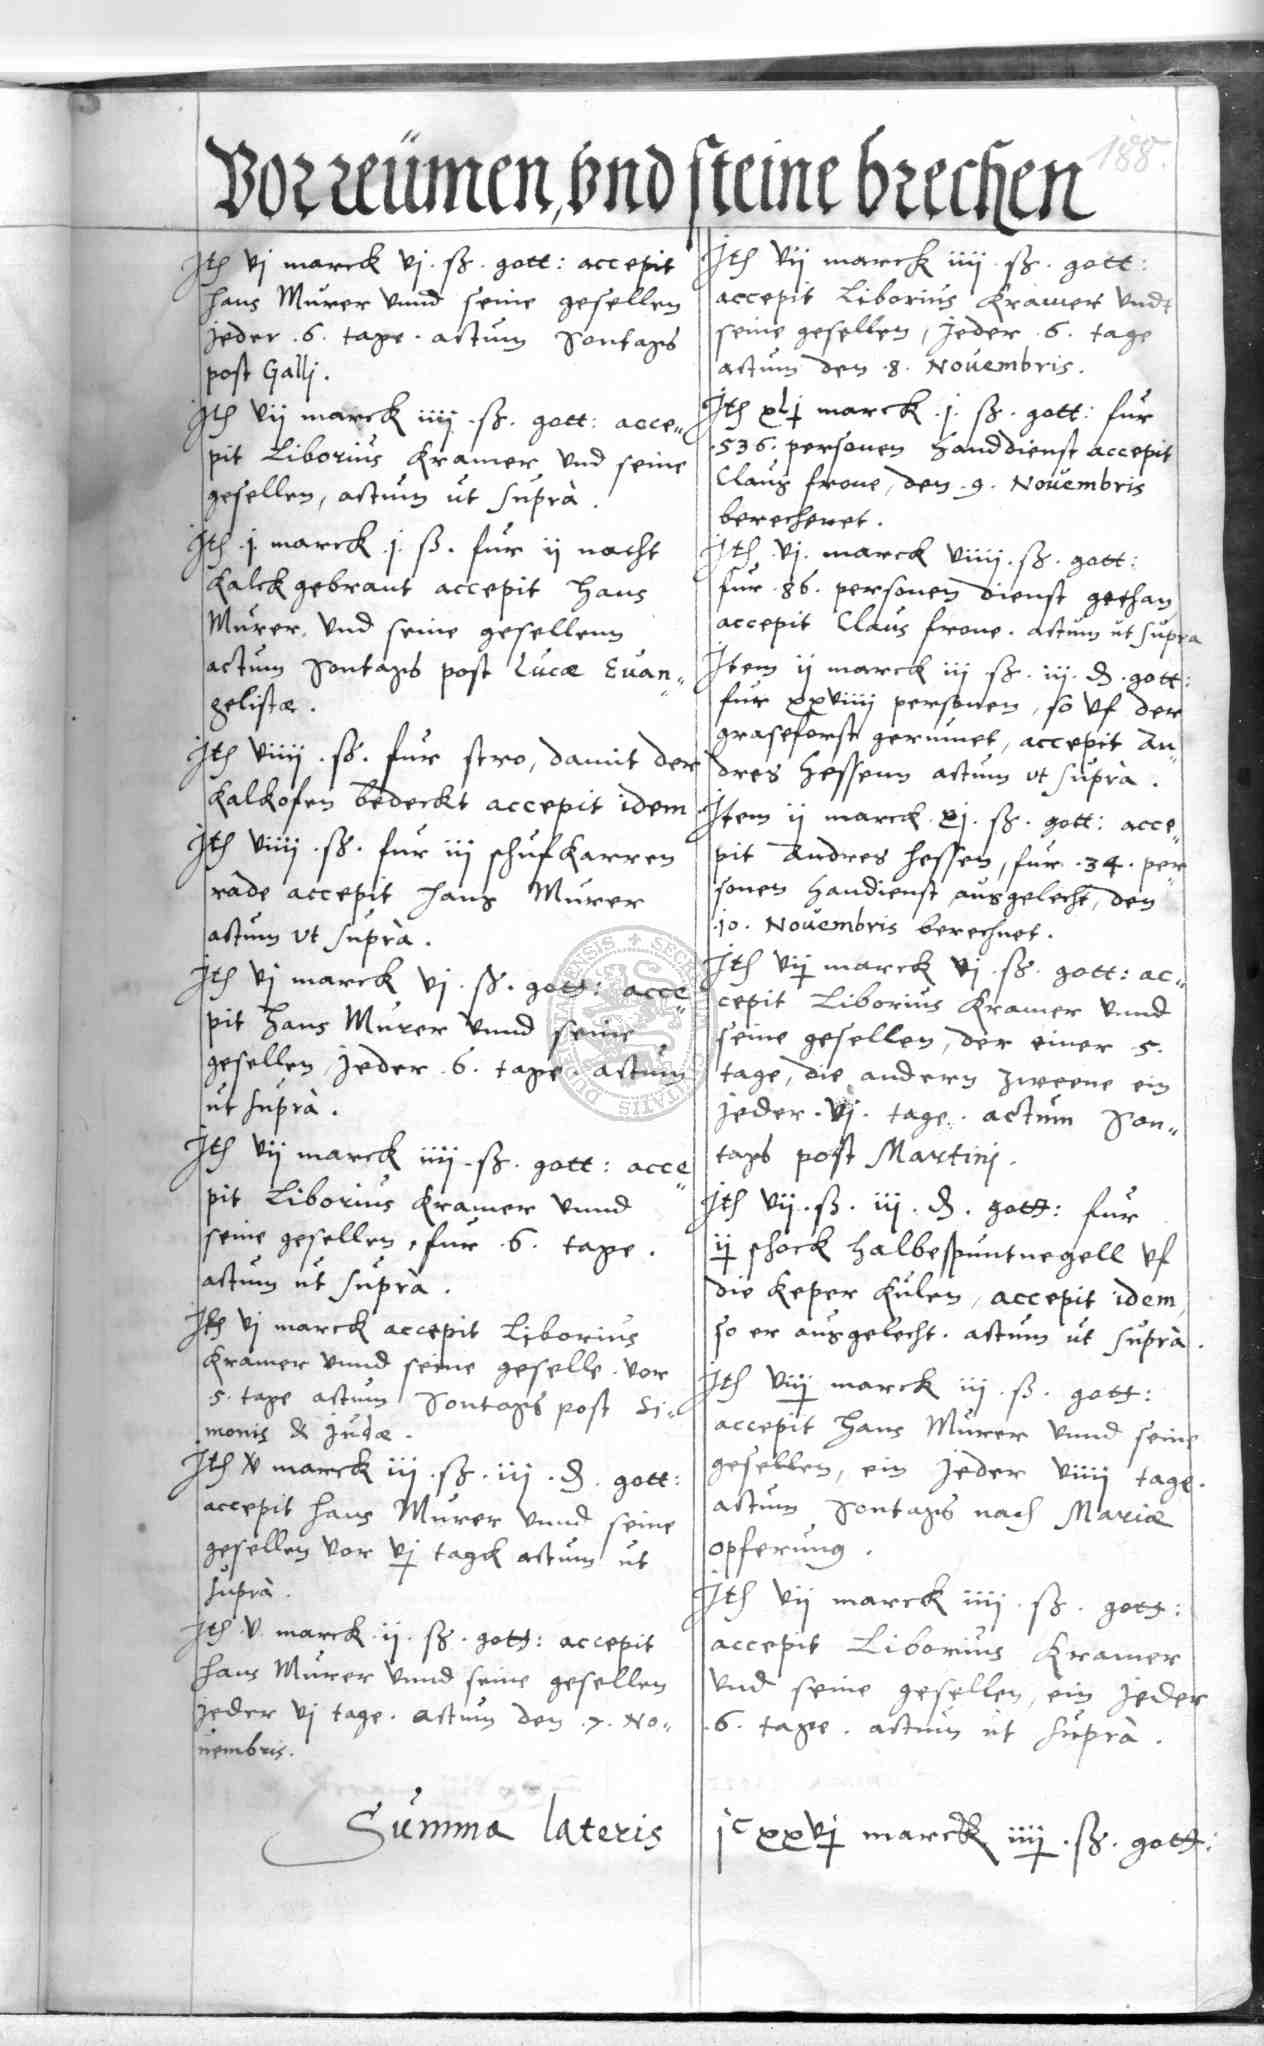 188.
Vorreümen, vnd steine brechen
Jth vj marck vj. ß. gott: accepit
Hans Mürer vnnd seine gesellen
jeder .6. tage. actum Sontags
post Galli.
Jth vij marck iiij .ß. gott: acce„
pit Liborius Kramer vnd seine
gesellen, actum ut suprà.
Jth .j. marck .j. ß. für ij nacht
Kalck gebrant accepit Hans
Mürer vnd seine gesellenn
actum Sontags post Lucæ Euan„
gelistæ.
Jth viiij .ß. für stro, damit der
Kalkofen bedeckt accepit idem
Jth viiij .ß. für iij schufkarren
rade accepit Hans Mürer
actum vt suprà.
Jth vj marck vj. ß. gott: acce„
pit Hans Mürer vnnd seine
gesellen jeder .6. tage. actum
ut suprà.
Jth vij marck iiij .ß. gott: acce„
pit Liborius Kramer vnnd
seine gesellen, für .6. tage.
actum ut suprà.
Jth vj marck accepit Liborius
Kramer vnnd seine geselle vor
5. tage actum Sontags post Si„
monis & Judæ.
Jth v marck iij .ß. iij .d. gott:
accepit Hans Mürer vnnd seine
gesellen vor vj tagk actum ut
suprà.
Jth v marck ij. ß. gott: accepit
Hans Mürer vnnd seine gesellen
jeder vj tage. actum den .7. No„
uembris.
Jth vij marck iiij .ß. gott:
accepit Liborius Kramer vndt
seine gesellen, jeder .6. tage
actum den .8. Nouembris.
Jth xlj marck .j. ß. gott: für
.536. personen handdienst accepit
Claus frone, den .9. Nouembris
berechenet.
Jth .vj. marck viiij .ß. gott:
für .86. personen dienst gethan
accepit Claus frone. actum ut supra
Jtem ij marck iij ß. iij. d. gott:
für xxviiij personen, so vf der
graseforst gerumet, accepit An„
dres Hessenn actum vt suprà.
Jtem ij marck xj. ß. gott: acce„
pit Andres Hessen, für .34. per„
sonen handienst ausgelecht, den
.10. Nouembris berechnet.
Jth vij marck vj .ß. gott: ac„
cepit Liborius Kramer vnnd
seine gesellen, der einer 5.
tage, die andern zweene ein
jeder .vj. tage. actum Son„
tags post Martinj.
Jth vij .ß. iij .d. gott: für
ij schock halbespuntnegell vf
die Keper Kulen, accepit idem,
so er ausgelecht. actum ut suprà.
Jth viij marck iij .ß. gott:
accepit Hans Mürer vnnd seine
gesellen, ein jeder viiij tage.
actum Sontags nach Mariæ
opferung.
Jth vij marck iiij .ß. gott:
accepit Liborius Kramer
vnd seine gesellen, ein jeder
.6. tage. actum ut suprà.
Summa lateris jc xxvj marck iiij .ß. gott: